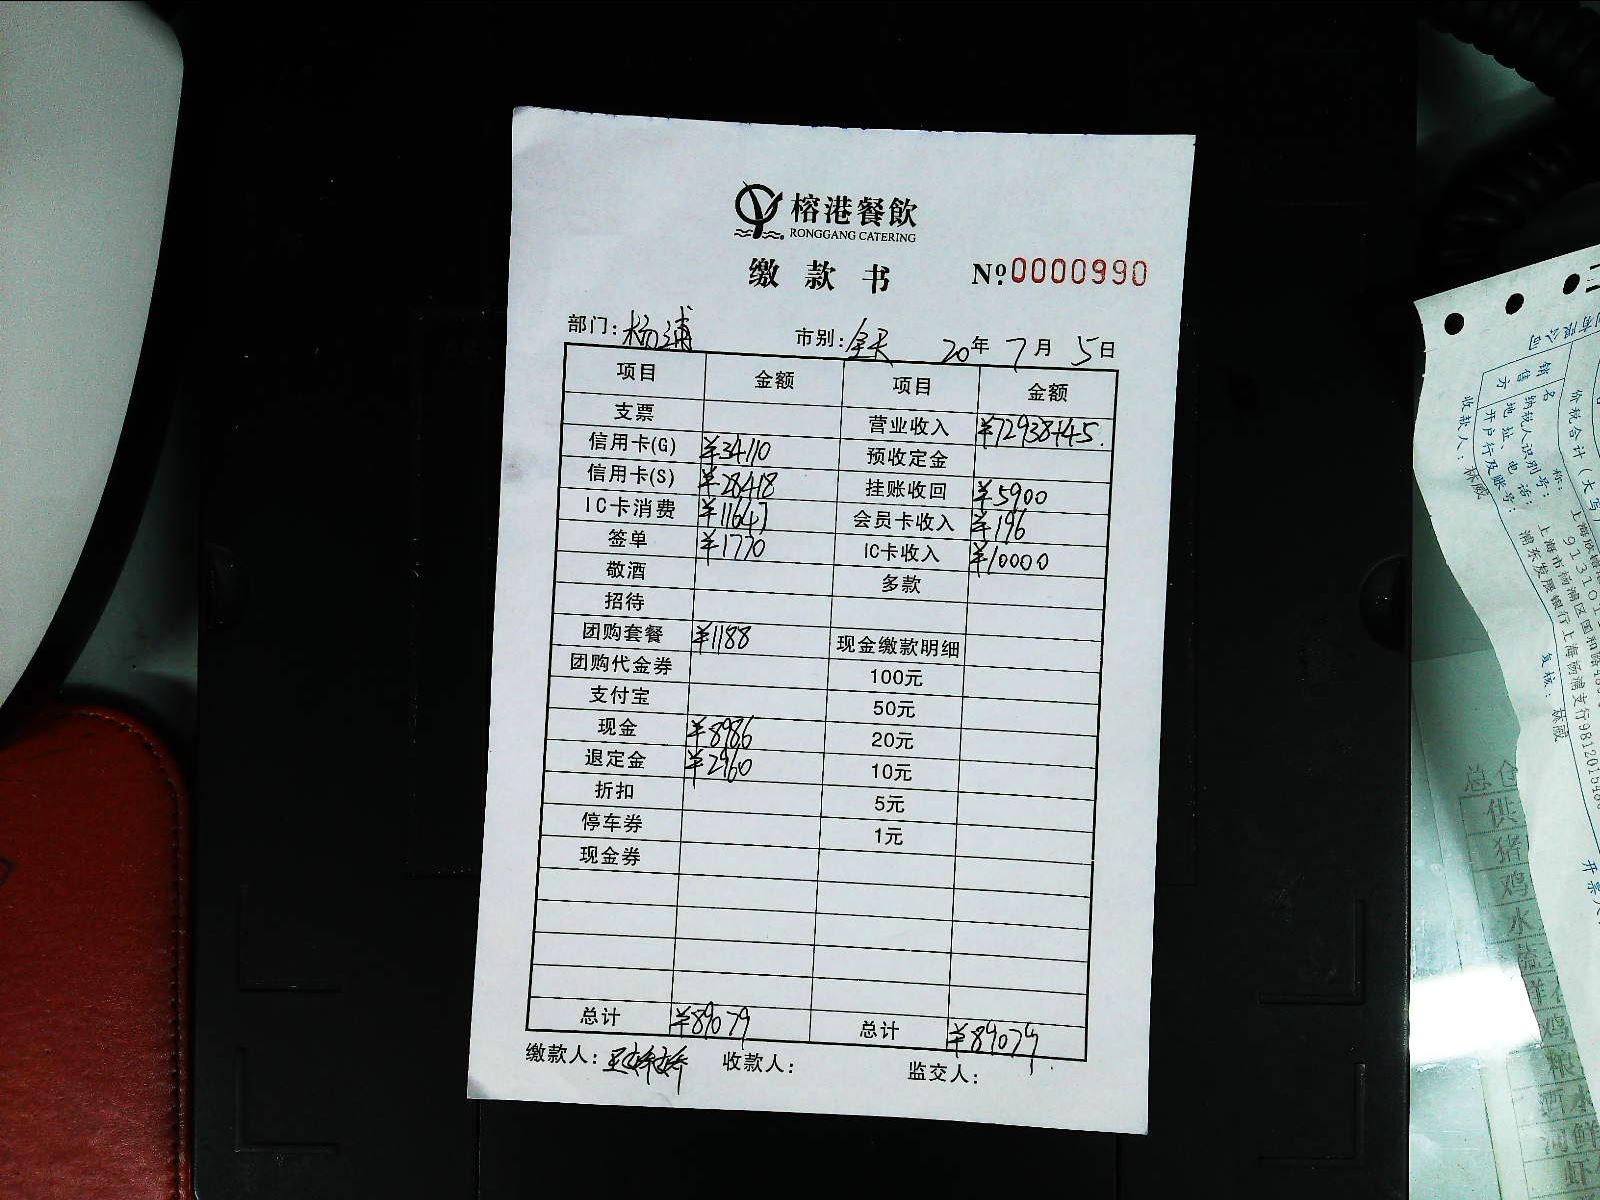 榕港餐飲
RONGGANG CATERING
缴款书 Nº:0000990
部门:杨浦 市别:全天 20年7月5日
项目 金额 项目 金额
支票 营业收入 ¥72938+45.
信用卡(G) ¥34110 预收定金
信用卡(S) ¥28418 挂账收回 ¥5900
IC卡消费 ¥11647 会员卡收入 ¥196
签单 ¥1770 IC卡收入 ¥10000
敬酒 多款
招待
团购套餐 ¥1188 现金缴款明细
团购代金券 100元
支付宝 50元
现金 ¥8986 20元
退定金 ¥2960 10元
折扣 5元
停车券 1元
现金券
总计 ¥89079 总计 ¥89079
缴款人: 收款人: 监交人:
销售方
名 称:
纳税人识别号:
地址、电话:
开户行及账号:
价税合计(大写
收款人: 林威
复核: 林威
开票人
总仓
供
猪
鸡
水